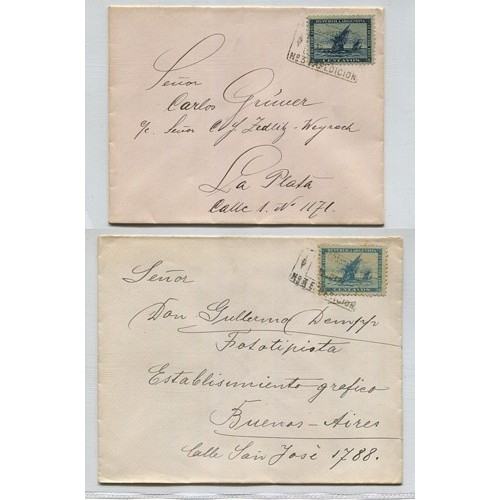 REPUBLICA ARGENTINA
CENTAVOS
Nº 5 EXPEDICION
Señor
Carlos Grüner
c/o Señor C. v. J. Zedlitz-Weyrach
La Plata
Calle 1. Nº 1171.
REPUBLICA ARGENTINA
CENTAVOS
EXPEDICION
Señor
Don Gullermo Dempp
Fototipista
Establisimiento grafico
Buenos-Aires
Calle San José 1788.